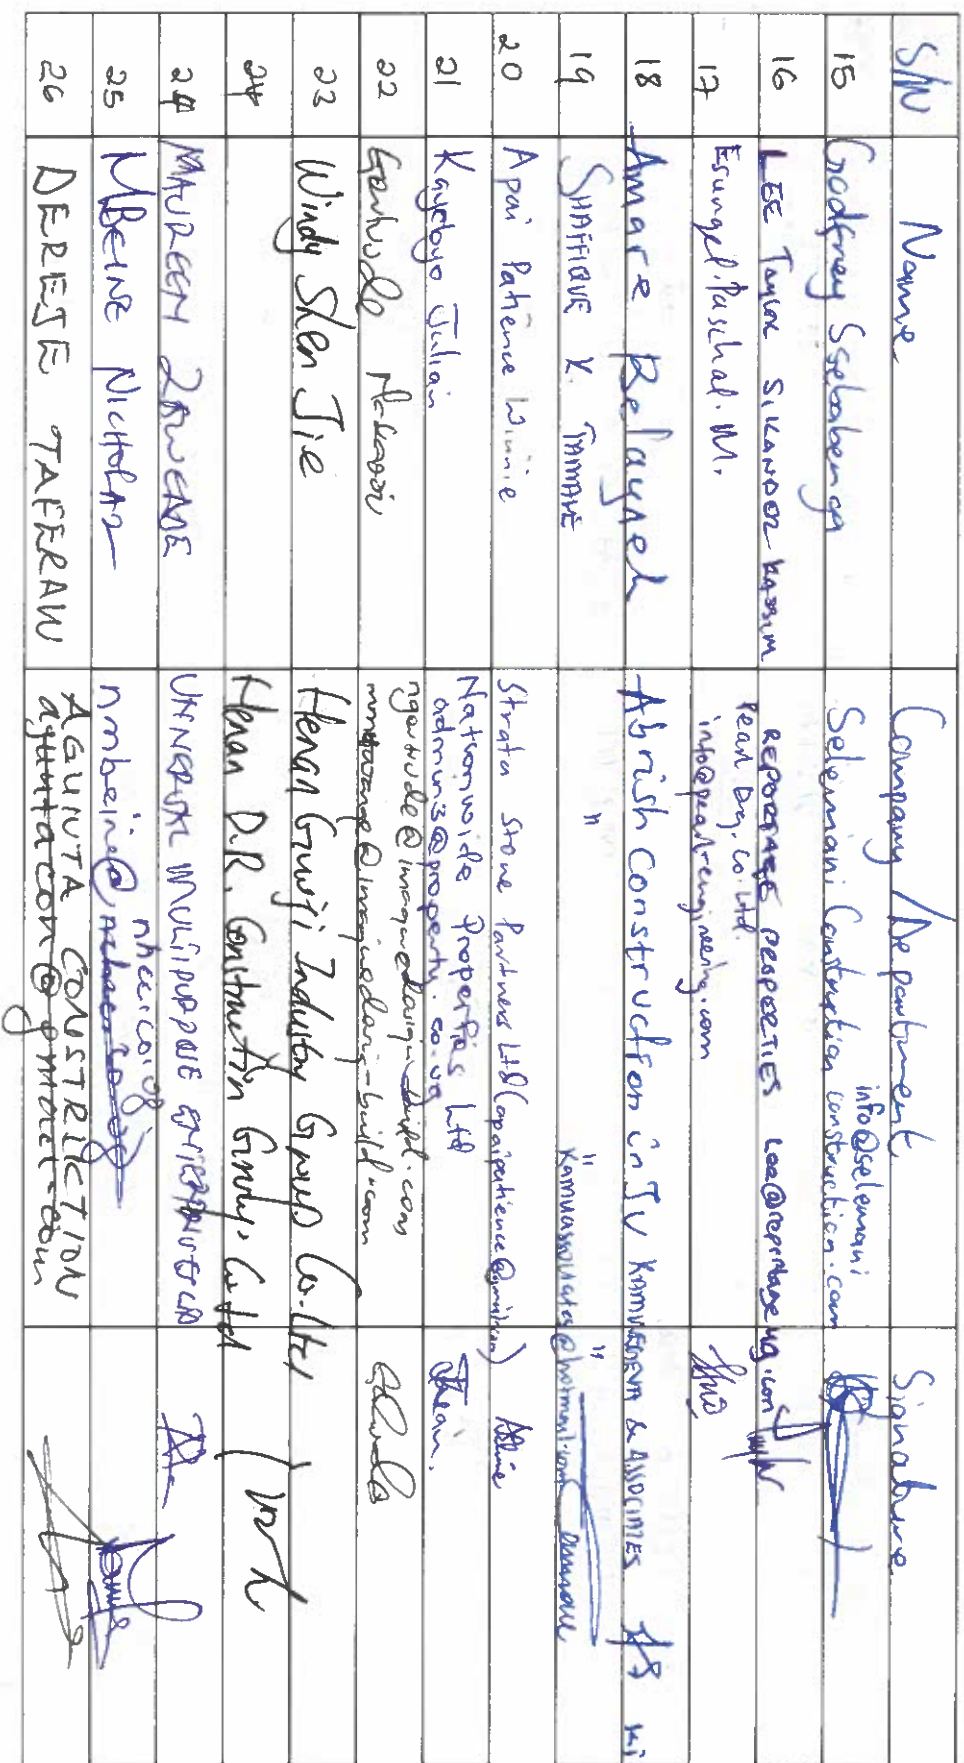 S/N Name Company/Department Signature
15 Godfrey Ssebabenga Selemani Construction info@selemani construction.com
16 LEE Taylor SIKANDER KASSIM REPORTAGE PROPERTIES Lee@reportage ug.com
17 Esungel.Paschal.M. Pearl Eng. Co. Ltd.
info@pearl-engineering.com
18 Amare Belayneh Abrish Construction in JV KAMUKAMA & ASSOCIATES
19 SHAFFIQUE K. " " "
Kamuassociates@hotmail.com
20 Apai Patience Winnie Strata Stone Partners Ltd (apaipatience@
21 Kayeboyo Julian Nationwide Properties Ltd
admin3@property.co.ug
22 Gertrude ngertrude@imaginedesign-build.com
@imaginedesign-build.com
23 Windy Shen Jie Henan Guoji Industry Group Co. Ltd
24 Henan D.R. Construction Group. Co Ltd
24 MAUREEN UNIVERSAL MULTIPURPOSE ENTERPRISES LTD
25 MBEINE NICHOLAS nmbeine@
nhcc.co.ug
26 DEREJE TAFERAW AGUNTA CONSTRUCTION
aguntacon@gmail.com